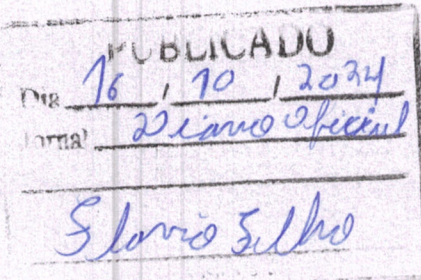 PUBLICADO
Dia 16 / 10 / 2024
Jornal Diario Oficial
Flavio Filho